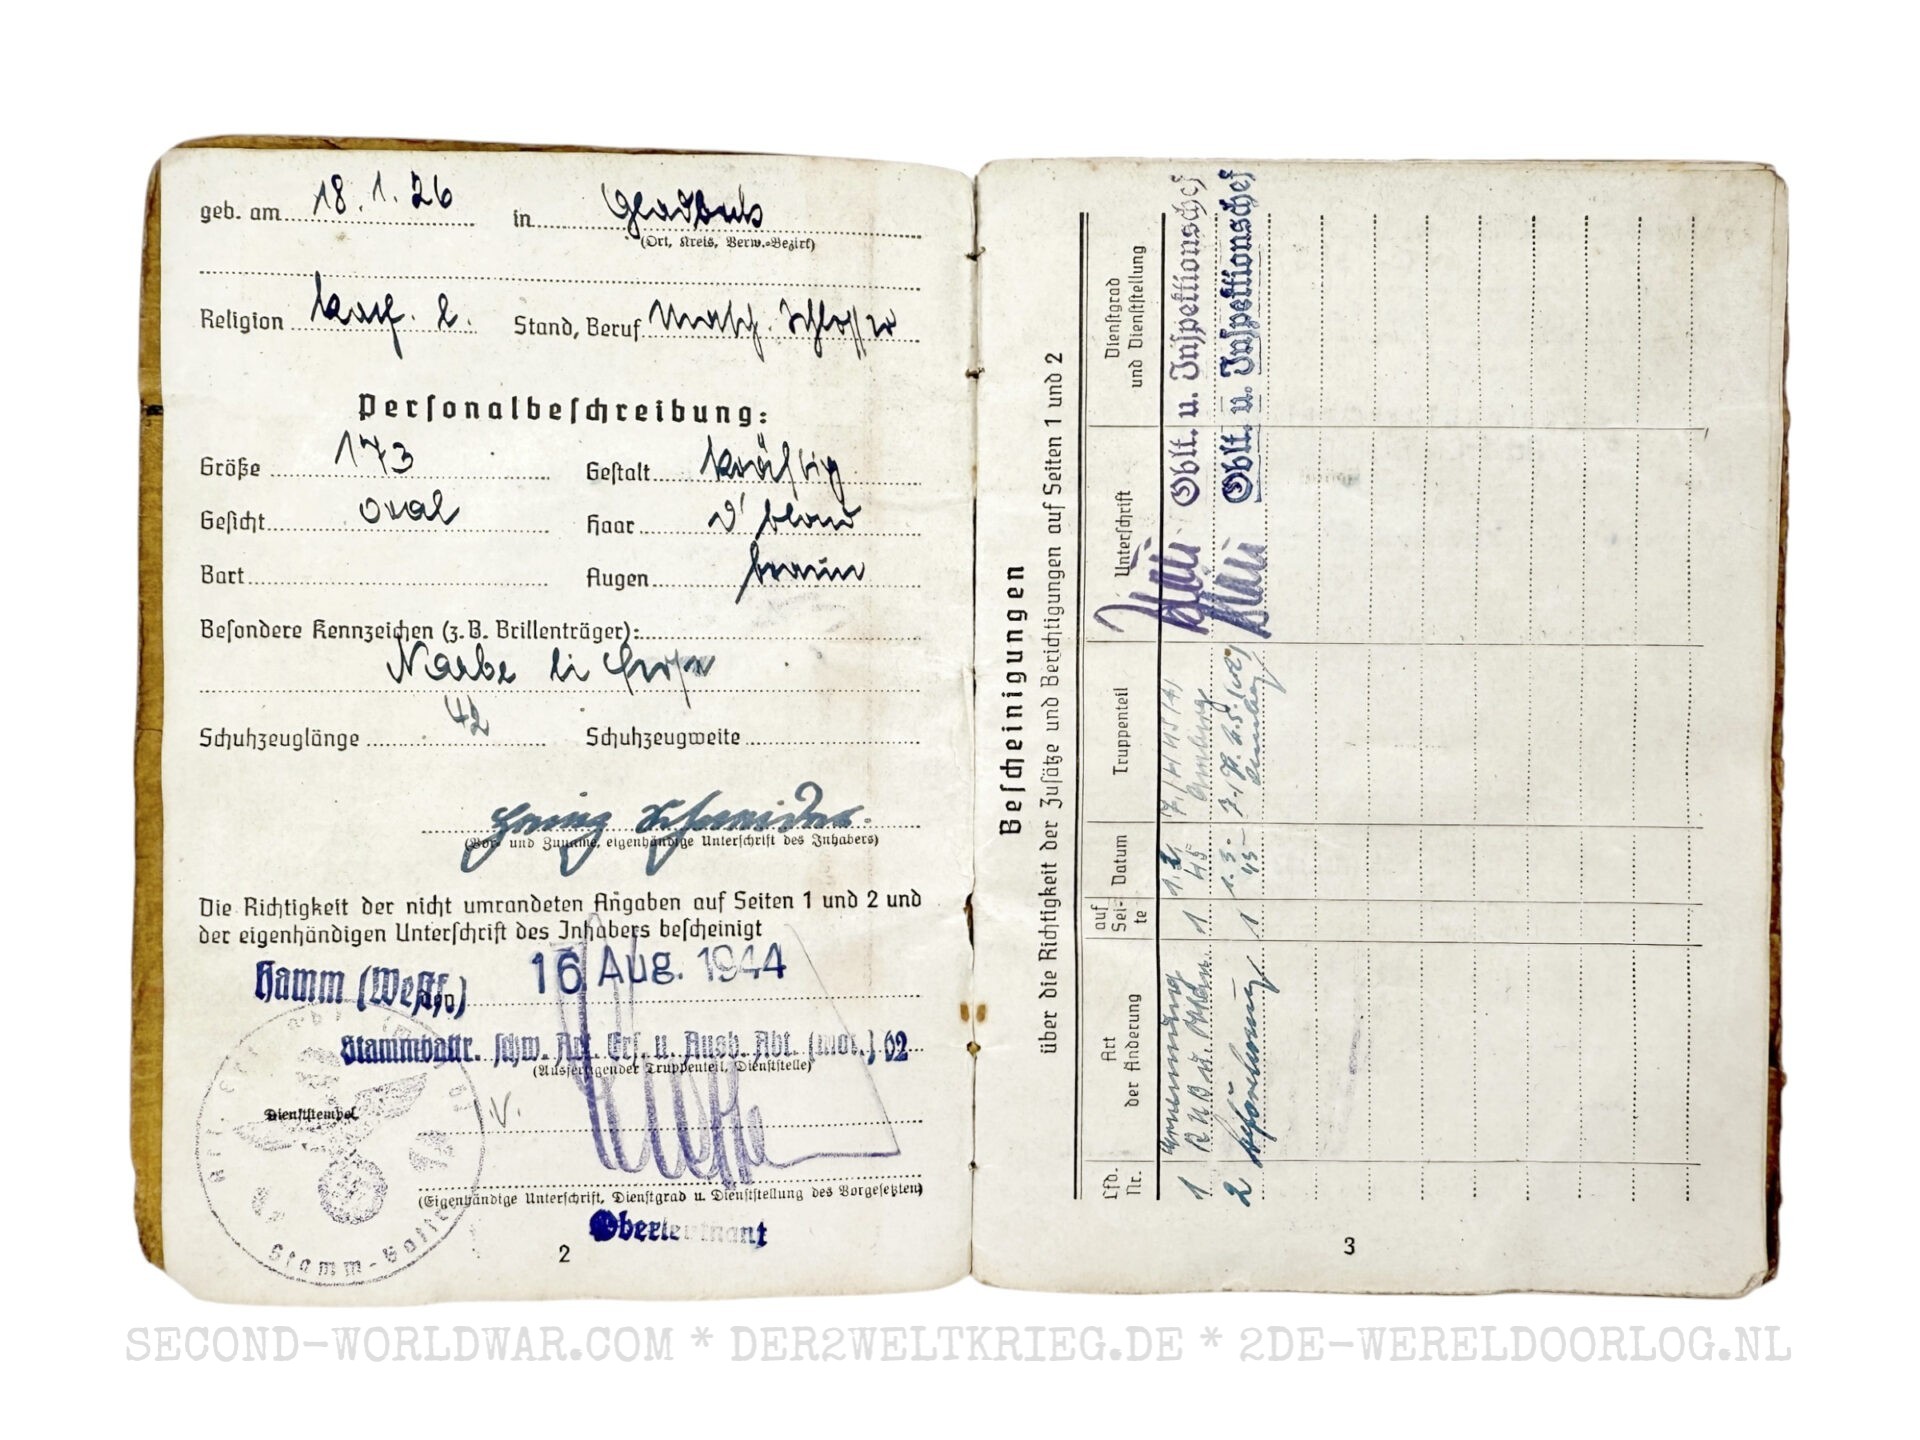 geb. am 18.1.26 in Gladbeck
(Ort, Kreis, Verw.-Bezirk)
Religion kath. Stand, Beruf Masch. Schlosser
Personalbeschreibung:
Größe 173 Gestalt kräftig
Gesicht oval Haar d' blond
Bart Augen braun
Besondere Kennzeichen (z.B. Brillenträger):
Narbe li
Schuhzeuglänge 42 Schuhzeugweite
Heinz Schneider
(Vor- und Zuname, eigenhändige Unterschrift des Inhabers)
Die Richtigkeit der nicht umrandeten Angaben auf Seiten 1 und 2 und
der eigenhändigen Unterschrift des Inhabers bescheinigt
Hamm (Westf.) den 16. Aug. 1944
Stammbattr. schw. Art. Ers. u. Ausb. Abt. (mot.) 62
(Ausfertigender Truppenteil, Dienststelle)
Dienststempel
(Eigenhändige Unterschrift, Dienstgrad u. Dienststellung des Vorgesetzten)
Oberleutnant
Stamm-Batterie
2
Bescheinigungen
über die Richtigkeit der Zusätze und Berichtigungen auf Seiten 1 und 2
Lfd. Nr. Art der Änderung auf Seite Datum Truppenteil Unterschrift Dienstgrad und Dienststellung
1 Ernennung 1 1.2. 45 Amberg Oblt. u. Inspektionschef
2 Beförderung 1 1.3. 45 Amberg Oblt. u. Inspektionschef
3
SECOND-WORLDWAR.COM * DER2WELTKRIEG.DE * 2DE-WERELDOORLOG.NL